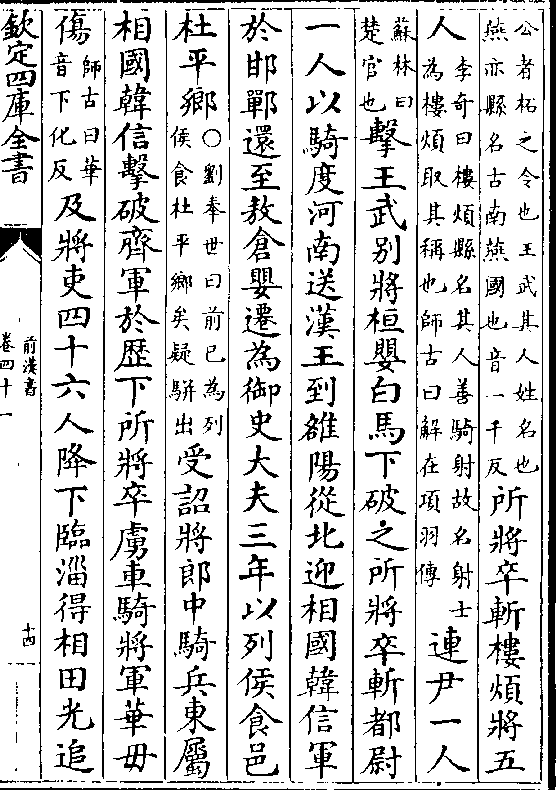 公者柘之令也王武其人姓名也
燕亦縣名古南燕國也音一千反
所將卒斬樓煩將五
李奇曰樓煩縣名其人善騎射故名射士
人
為樓煩取其稱也師古曰解在項羽傳
連尹一人
蘇林曰
楚官也
擊王武別將桓嬰白馬下破之所將卒斬都尉
一人以騎度河南送漢王到雒陽從北迎相國韓信軍
於邯鄲還至敖倉嬰遷為御史大夫三年以列侯食邑
杜平鄉
○劉奉世曰前已為列
侯食杜平鄉矣疑駢出
受詔將郎中騎兵東屬
相國韓信擊破齊軍於歷下所將卒虜車騎將軍華毋
傷
師古曰華
音下化反
及將吏四十六人降下臨淄得相田光追
欽定四庫全書
前漢書
卷四十一
十四